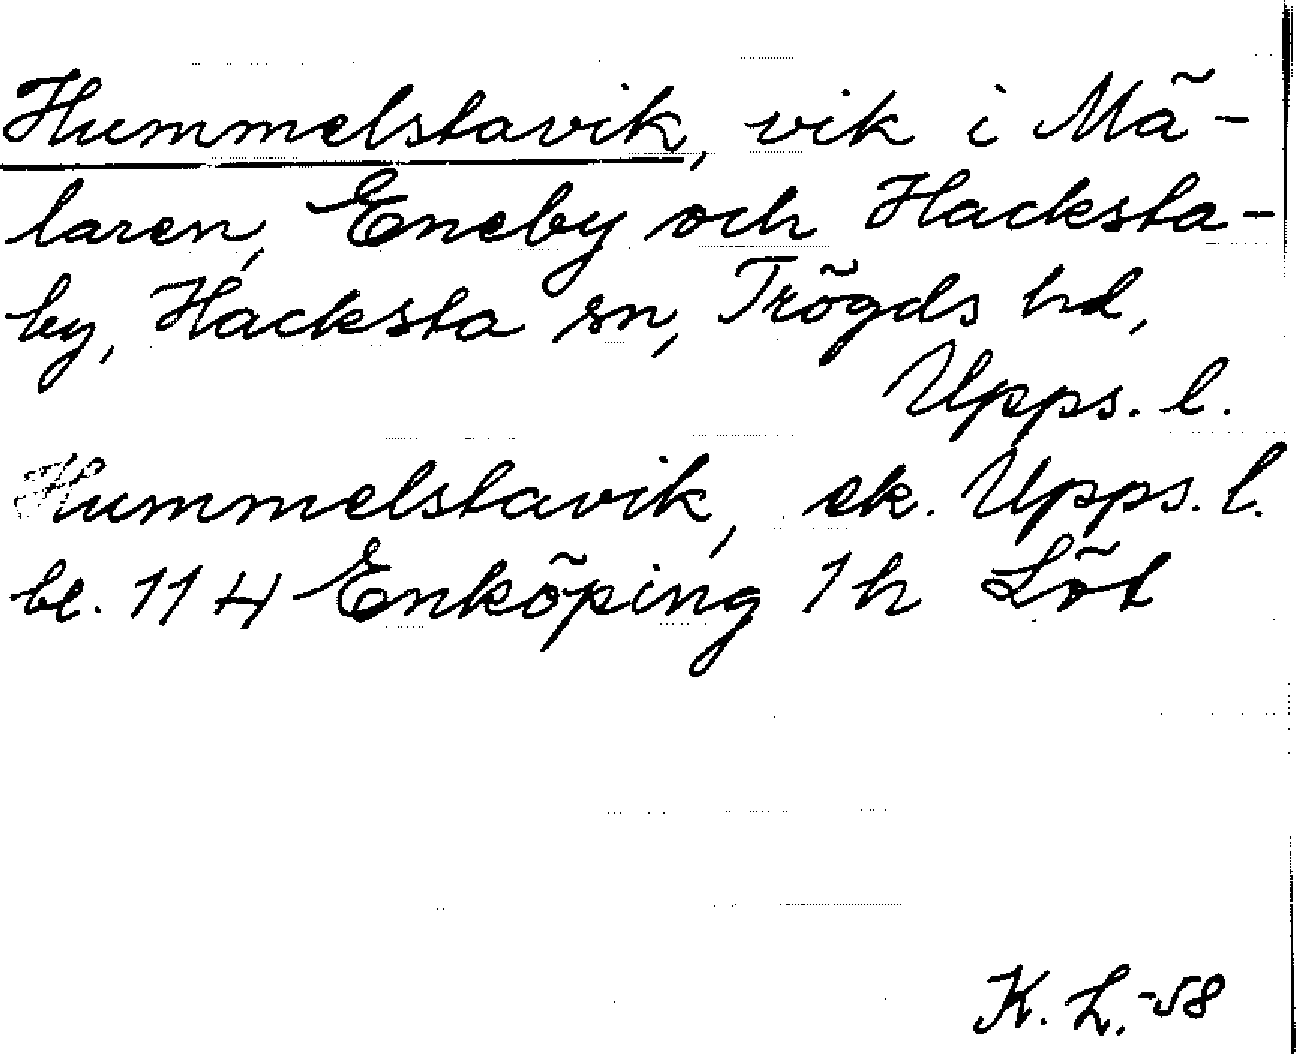 Hummelstavik, vik i Mä-
laren, Eneby och Hacksta-
by, Hacksta sn, Trögds hd,
Upps. l.
Hummelstavik, ek. Upps. l.
bl. 114 Enköping 1h Löt
K. L. -58